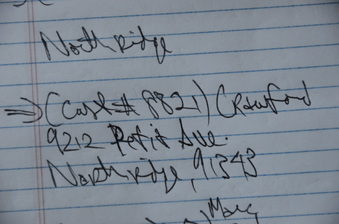 Northridge
⇒ (Cust# 8821) Crawford
9212 Petit Ave.
Northridge, 91343
Mary